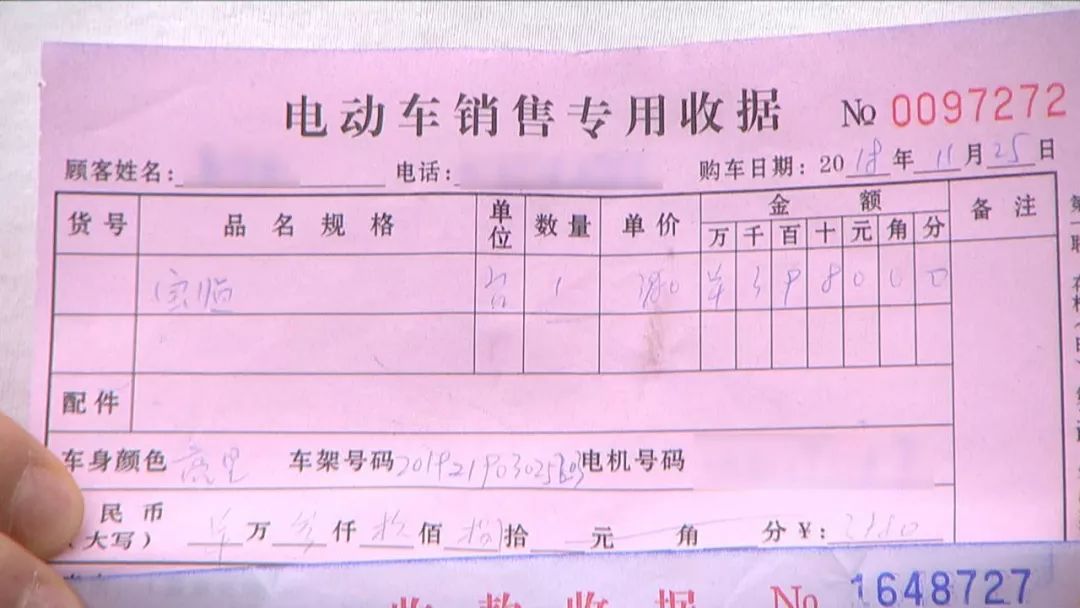 电动车销售专用收据 № 0097272
顾客姓名: 电话: 购车日期: 2018年11月25日
货号 品名规格 单位 数量 单价 金额 备注
万 千 百 十 元 角 分
宝临 台 1 3980 3 9 8 0 0 0
配件
车身颜色 亮黑 车架号码 电机号码
民币
(大写) 万 叁仟 玖佰 捌拾 元 角 分 ¥: 3980
收款收据 № 1648727